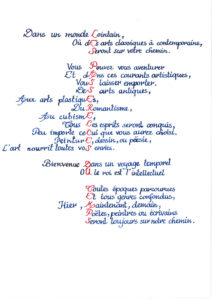 Dans un monde Lointain,
Où dEs arts classiques à contemporains,
Seront sur votre chemin.
Vous Pouvez vous aventurer
Et dAns ces courants artistiques,
VouS laisser emporter.
DeS arts antiques,
Aux arts plastiquEs,
Du Romantisme,
Au cubismE,
Tous Les esprits seront conquis,
Peu importe ceLui que vous aurez choisi,
PeinturE, dessin, ou poésie,
L'art nourrit touteS vos envies.
Bienvenue Dans un voyage temporel
OÙ le roi est l'intellectuel
Toutes époques parcourues
Et tous genres confondus,
Hier, Maintenant, demain,
Poètes, peintres ou écrivains
Seront toujours sur notre chemin.